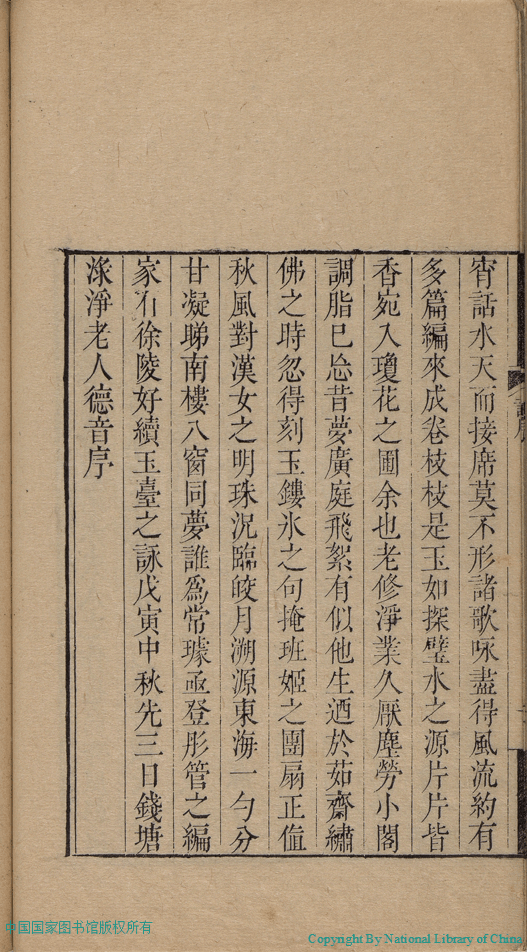 宵話水天而接席莫不形諸歌咏盡得風流約有
多篇編來成卷枝枝是玉如探璧水之源片片皆
香宛入瓊花之圃余也老修淨業久厭塵勞小閣
調脂已忘昔夢廣庭飛絮有似他生迺於茹齋繡
佛之時忽得刻玉鏤氷之句掩班姬之團扇正値
秋風對漢女之明珠況臨皎月溯源東海一勺分
甘凝睇南樓八窗同夢誰爲常璩亟登彤管之編
家有徐陵好續玉臺之詠戊寅中秋先三日錢塘
淨老人德音序
中国国家图书馆版权所有
Copyright By National Library of China